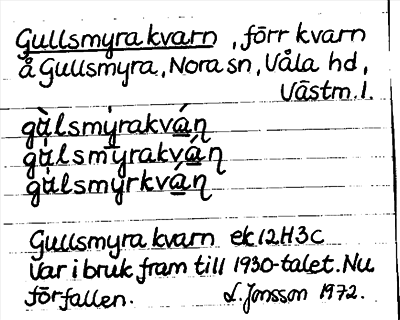 Gullsmyra kvarn, förr kvarn
å Gullsmyra, Nora sn, Våla hd,
Västm. l.
gùlsmýrakvá̲ɳ
gùlsmýrakvá̲ɳ
gùlsmyrkvá̲ɳ
Gullsmyra kvarn ek 12H3c
Var i bruk fram till 1930-talet. Nu
förfallen. L. Jonsson 1972.